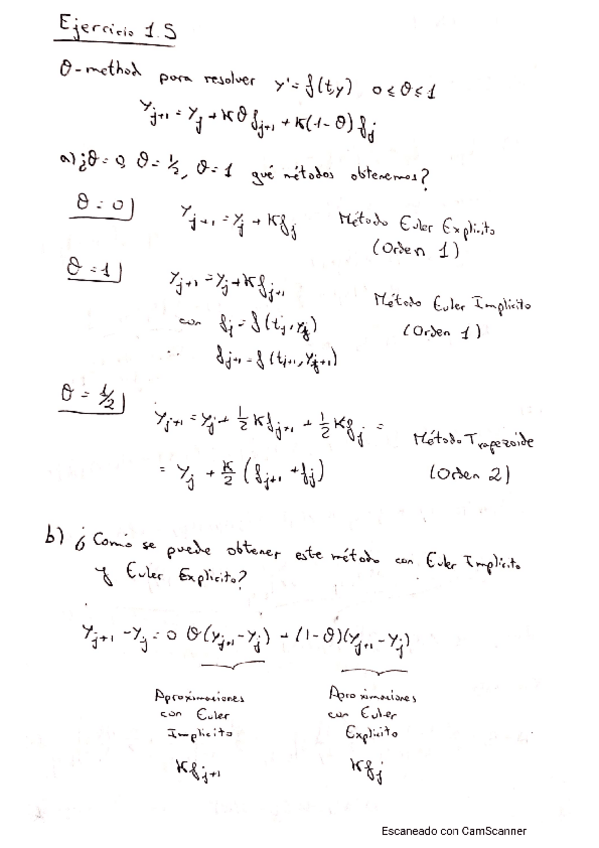 Ejercicio 1.5
θ-method para resolver y' = f(t,y) 0 ≤ θ ≤ 1
y_{j+1} = y_j + kθ f_{j+1} + k(1-θ) f_j
a) ¿θ = 0, θ = 1/2, θ = 1 qué métodos obtenemos?
θ = 0 y_{j+1} = y_j + k f_j Método Euler Explícito
(Orden 1)
θ = 1 y_{j+1} = y_j + k f_{j+1} Método Euler Implícito
con f_j = f(t_j, y_j) (Orden 1)
f_{j+1} = f(t_{j+1}, y_{j+1})
θ = 1/2 y_{j+1} = y_j + 1/2 k f_{j+1} + 1/2 k f_j = Método Trapezoide
= y_j + k/2 (f_{j+1} + f_j) (Orden 2)
b) ¿Como se puede obtener este método con Euler Implícito
y Euler Explícito?
y_{j+1} - y_j = θ(y_{j+1} - y_j) + (1-θ)(y_{j+1} - y_j)
Aproximaciones con Euler Implícito
k f_{j+1}
Aproximaciones con Euler Explícito
k f_j
Escaneado con CamScanner